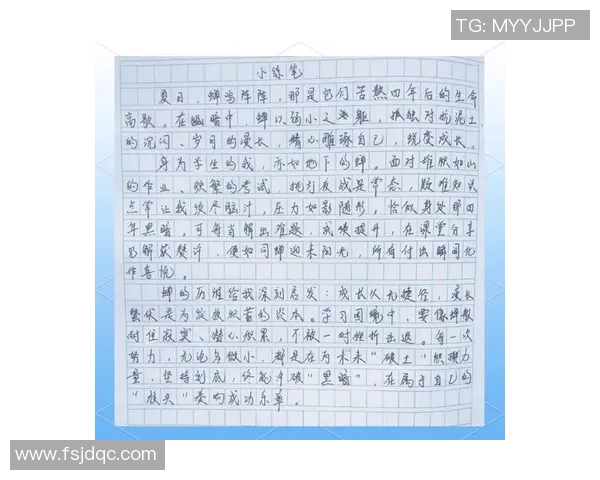 TG: MYYJJPP
小练笔
夏日，蝉鸣阵阵，那是它们苦熬四年后的生命
高歌。在幽暗中，蝉以弱小之躯，孤独对抗泥土
的沉闷、岁月的漫长，精心雕琢自己，蜕变成长。
身为学生的我，亦如地下的蝉。面对堆积如山
的作业、频繁的考试，挑灯夜战是常态，疑难知识
点常让我绞尽脑汁，压力如影随形，恰似身处那四
年黑暗。可每当解出难题，成绩提升，在课堂分享
见解获赞许，便如同蝉迎来阳光，所有付出瞬间化
作喜悦。
蝉的历程给我深刻启发：成长从无捷径，漫长
蛰伏是为绽放积蓄的资本。学习困境中，要像蝉般
耐住寂寞、潜心积累，不被一时挫折击退。每一次
努力，无论多微小，都是在为未来“破土”积攒力
量，坚持到底，终能冲破“黑暗”，在属于自己的
“枝头”奏响成功乐章。
www.fsjdqc.com